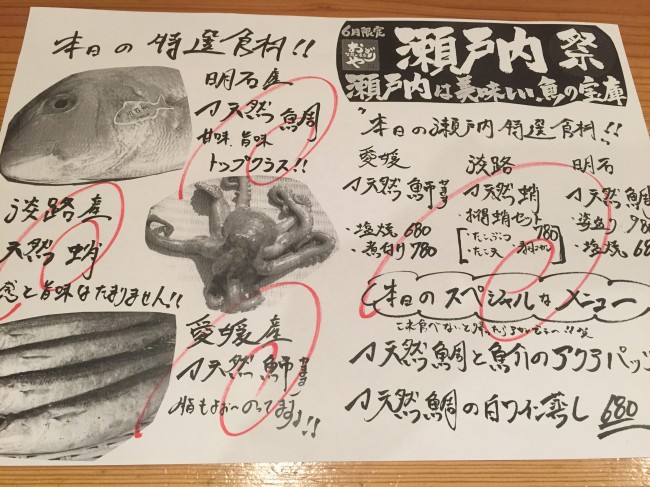 本日の特選食材!!
明石産
天然鯛
甘味、旨味
トップクラス!!
淡路産
天然蛸
感と旨味はたまりません!!
愛媛産
天然鰤
脂もよぉ〜のってます!!
6月限定
瀬戸内祭
瀬戸内は美味しい魚の宝庫
本日の瀬戸内特選食材!!
愛媛 淡路 明石
天然鰤 天然蛸 天然鯛
・塩焼 680
・煮付け 780
・お得蛸セット 780
・たこぶつ
・たこ天
・姿造り 980
・塩焼 680
本日のスペシャルなメニュー
天然鯛と魚介のアクアパッツ
天然鯛の白ワイン蒸し 680